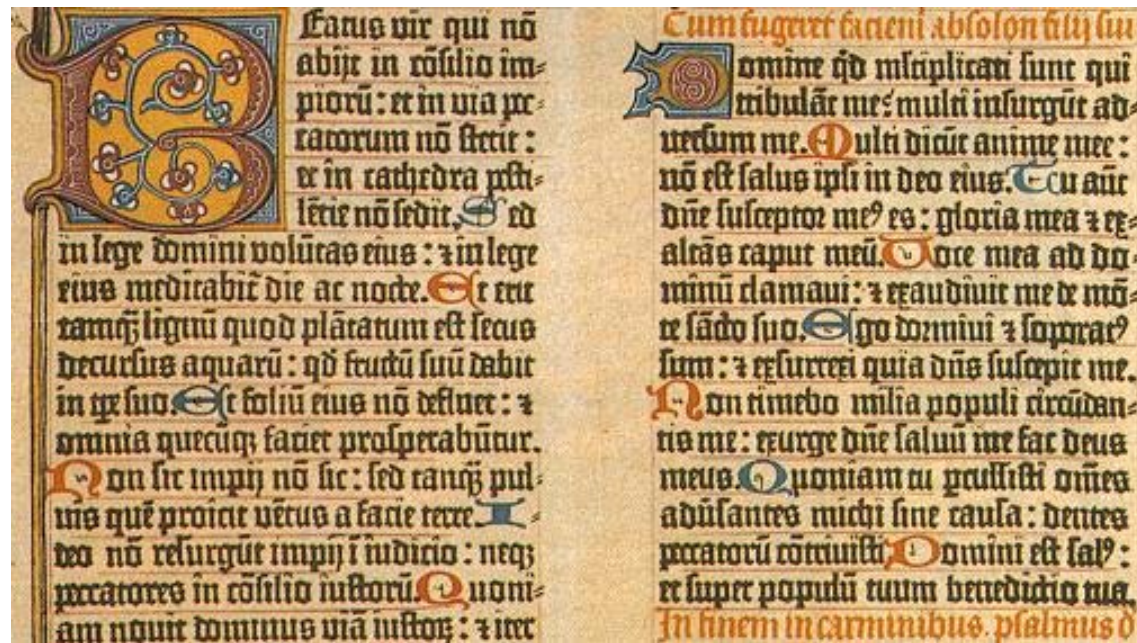 Beatus vir qui nō
abijt in cōsilio im=
piorū: et in via pec=
catorum nō stetit:
et in cathedra pesti=
lētie nō sedit. Sed
in lege domini volūtas eius: ⁊ in lege
eius meditabit̄ die ac nocte. Et erit
tamqᷓ lignū quod plātatum est secus
decursus aquarū: qd̄ fructū suū dabit
in tp̄e suo. Et foliū eius nō defluet: ⁊
omnia quecūqꝫ faciet prosperabūtur.
Non sic impij nō sic: sed tanqᷓ pul=
uis quē proicit vētus a facie terre. I=
deo nō resurgūt impij ī iudicio: neqꝫ
peccatores in cōsilio iustorū. Quoni=
am novit dominus viā iustoꝝ: ⁊ iter
Cum fugeret faciem absolon filij sui
Domine qd̄ mlt̄iplicati sunt qui
tribulāt me: multi insurgūt ad=
versum me. Multi dicūt anime mee:
nō est salus ipsi in deo eius. Tu aūt
dn̄e susceptor meꝰ es: gloria mea ⁊ ex=
altās caput meū. Voce mea ad do=
minū clamaui: ⁊ exaudiuit me de mō=
te sācto suo. Ego dormiui ⁊ soporatꝰ
sum: ⁊ exsurrexi quia dn̄s suscepit me.
Non timebo milia populi circūdan=
tis me: exurge dn̄e saluū me fac deus
meus. Quoniam tu ꝑcussisti om̄es
adūsantes michi sine causa: dentes
peccatorū cōtriuisti. Domini est salꝰ:
et super populū tuum benedictio tua.
In finem in carminibus. psalmus d